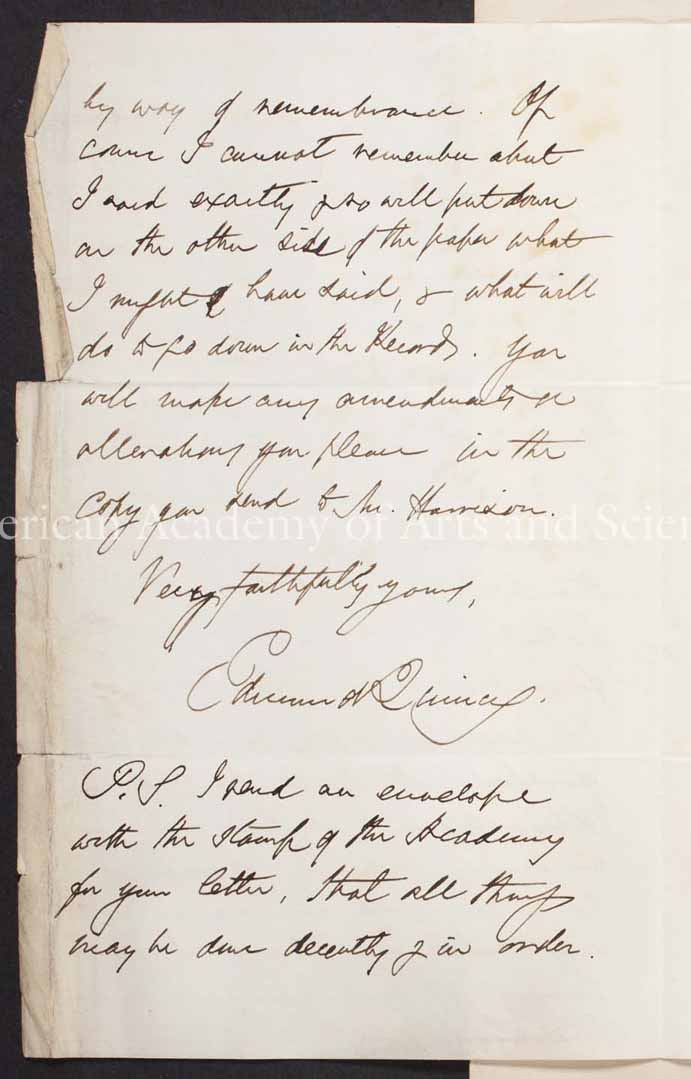 by way of remembrance. Of
course I cannot remember what
I said exactly & so will put down
on the other side of the paper what
I might have said, & what will
do to go down in the Records. You
will make any amendments or
alterations you please in the
copy you send to Mr. Harrison.
American Academy of Arts and Scien
Very faithfully yours,
Edmund Quincy.
P.S. I send an envelope
with the stamp of the Academy
for your letter, that all things
may be done decently & in order.